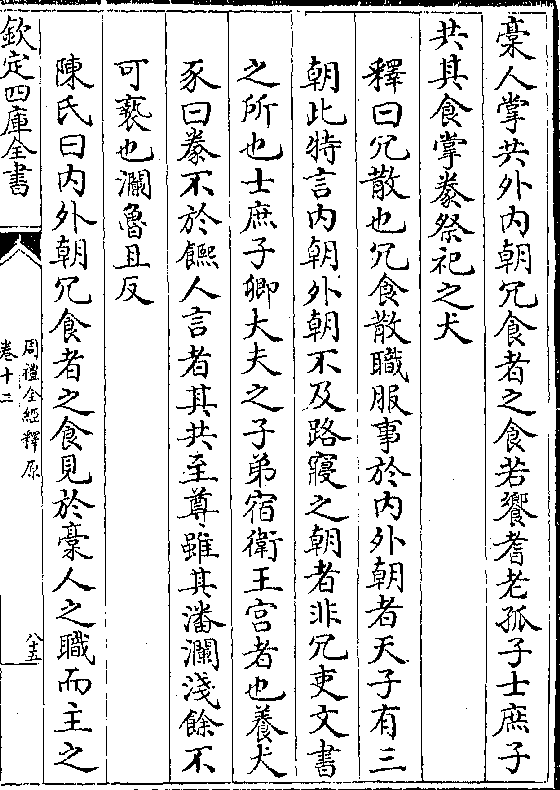 稾人掌共外内朝冗食者之食若饗耆老孤子士庶子
共其食掌豢祭祀之犬
釋曰冗散也冗食散職服事於内外朝者天子有三
朝此特言内朝外朝不及路寢之朝者非冗吏文書
之所也士庶子卿大夫之子弟宿衛王宫者也養犬
豕曰豢不於饎人言者其共至尊雖其潘瀾淺餘不
可褻也瀾魯旦反
陳氏曰内外朝冗食者之食見於稾人之職而主之
欽定四庫全書
周禮全經釋原
卷十二
八十五